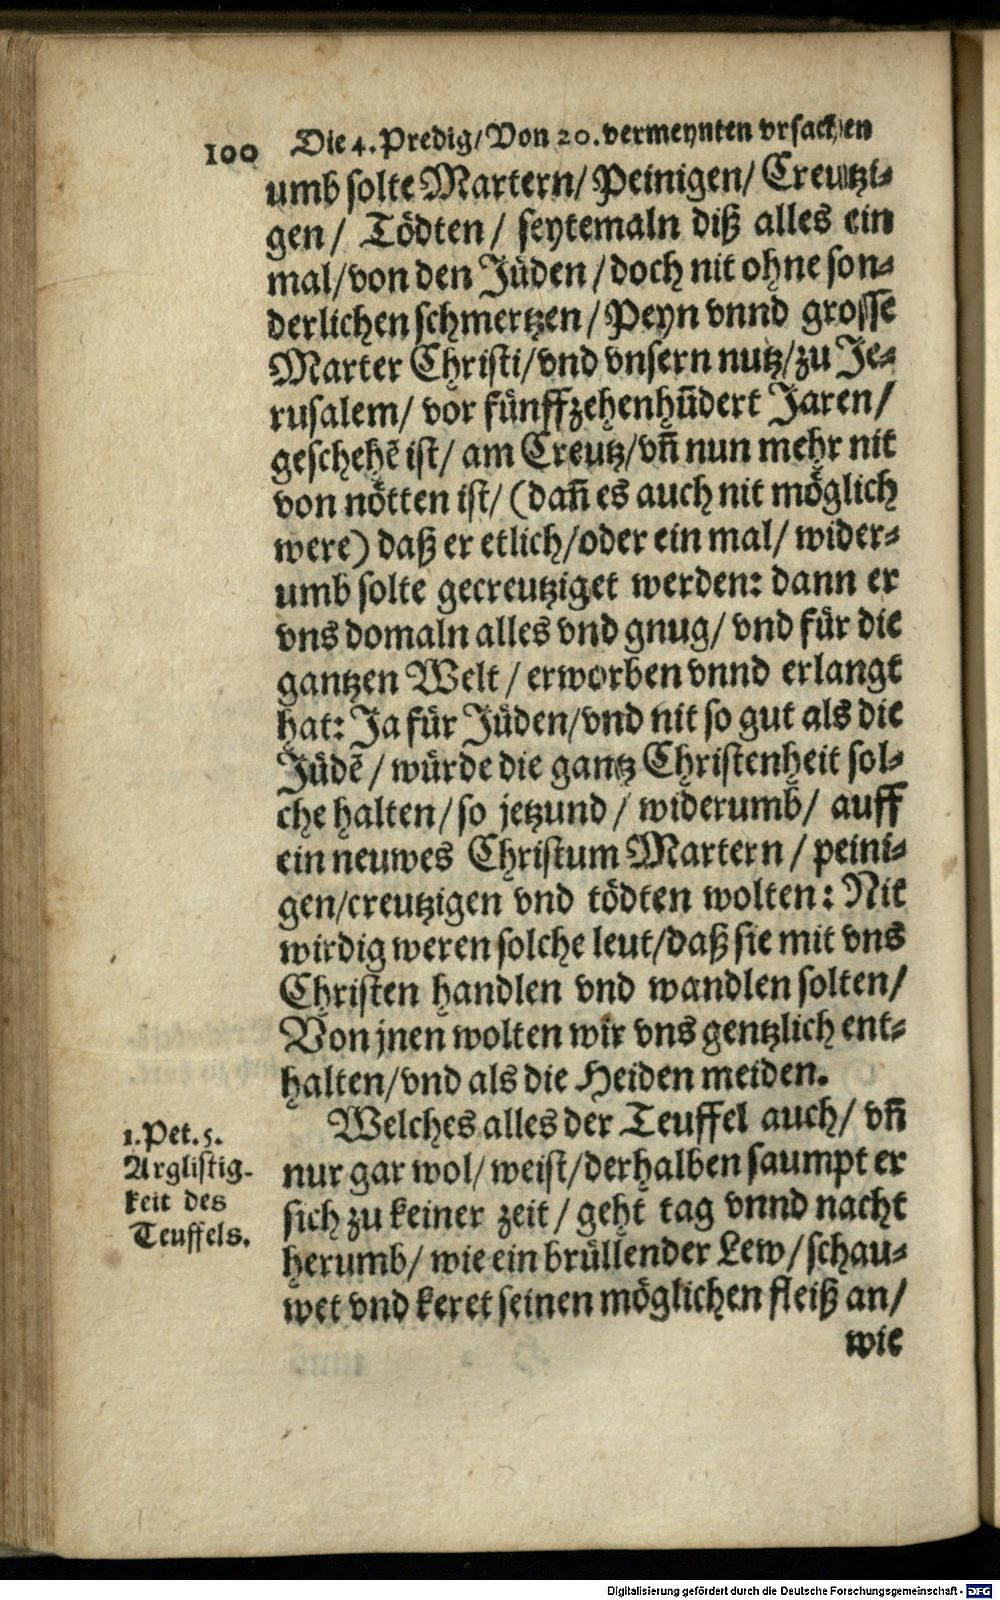 100 Die 4. Predig/Von 20. vermeynten vrsachen
umb solte Martern/ Peinigen/ Creutzi-
gen/ Tödten/ seytemaln diß alles ein
mal/von den Jüden/doch nit ohne son-
derlichen schmertzen/Peyn vnnd grosse
Marter Christi/vnd vnsern nutz/zu Je-
rusalem/ vor fünffzehenhūdert Jaren/
geschehē ist/ am Creutz/vn̄ nun mehr nit
von nötten ist/ (dañ es auch nit möglich
were) daß er etlich/oder ein mal/ wider-
umb solte gecreutziget werden: dann er
vns domaln alles vnd gnug/ vnd für die
gantzen Welt/ erworben vnnd erlangt
hat: Ja für Jüden/vnd nit so gut als die
Jüdē/ würde die gantz Christenheit sol-
che halten/so jetzund/ widerumb/ auff
ein neuwes Christum Martern/ peini-
gen/creutzigen vnd tödten wolten: Nit
wirdig weren solche leut/daß sie mit vns
Christen handlen vnd wandlen solten/
Von jnen wolten wir vns gentzlich ent-
halten/vnd als die Heiden meiden.
Welches alles der Teuffel auch/ vn̄
nur gar wol/ weist/derhalben saumpt er
sich zu keiner zeit/ geht tag vnnd nacht
herumb/ wie ein brüllender Lew/schau-
wet vnd keret seinen möglichen fleiß an/
wie
1. Pet. 5.
Arglistig-
keit des
Teuffels.
Digitalisierung gefördert durch die Deutsche Forschungsgemeinschaft - DFG